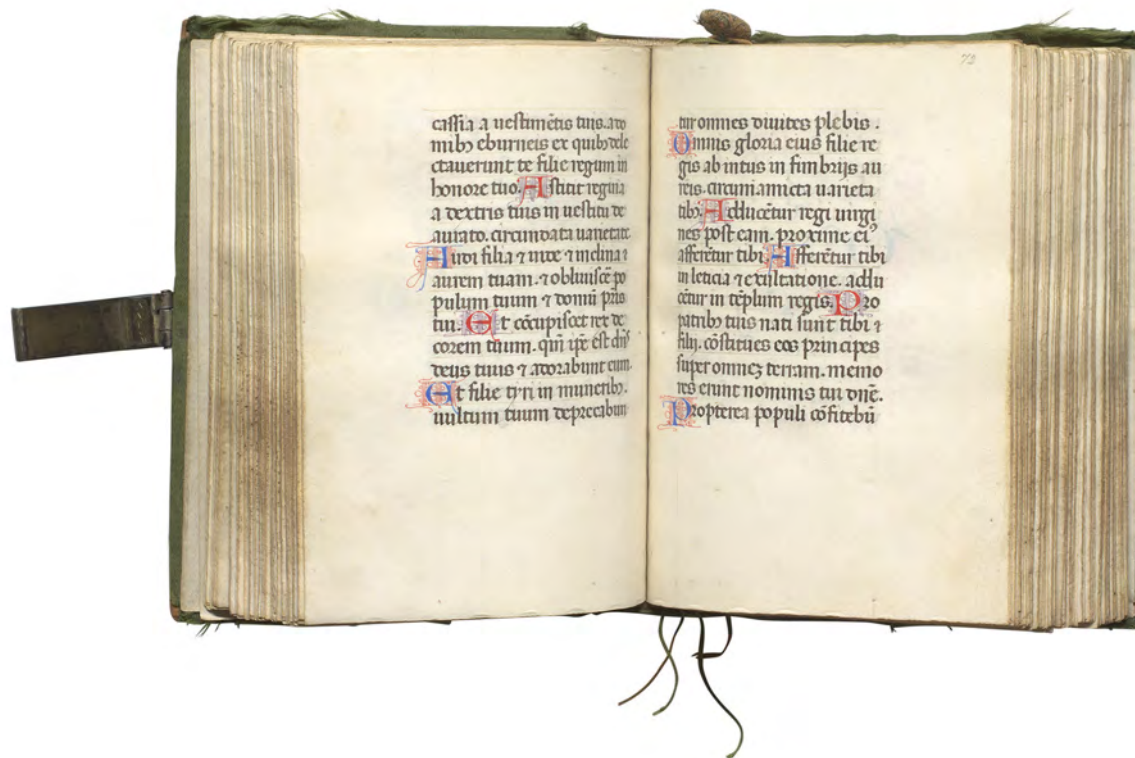 cassia a uestimētis tuis. a do
mibꝫ eburneis ex quibꝫ dele
ctauerunt te filie regum in
honore tuo. Astitit regina
a dextris tuis in uestitu de
aurato. circumdata uarietate
Audi filia ⁊ uide ⁊ inclina ⁊
aurem tuam. ⁊ obliuiscē po
pulum tuum ⁊ domū pr̄is
tui. Et cōcupiscet rex de
corem tuum. qm̄ ip̄e est dn̄s
deus tuus ⁊ adorabunt eum.
Et filie tyri in muneribꝫ.
uultum tuum deprecabun
72
tur omnes diuites plebis.
Omnis gloria eius filie re
gis ab intus in fimbrijs au
reis. circum amicta uarieta
tibꝫ. Adducētur regi uirgi
nes post eam. proxime eiꝰ
afferētur tibi. Afferētur tibi
in leticia ⁊ exultatione. addu
cētur in tēplum regis. Pro
patribꝫ tuis nati sunt tibi ⁊
filij. cōstitues eos principes
super omneꝫ terram. memo
res erunt nominis tui dn̄e.
Propterea populi cōfitebū